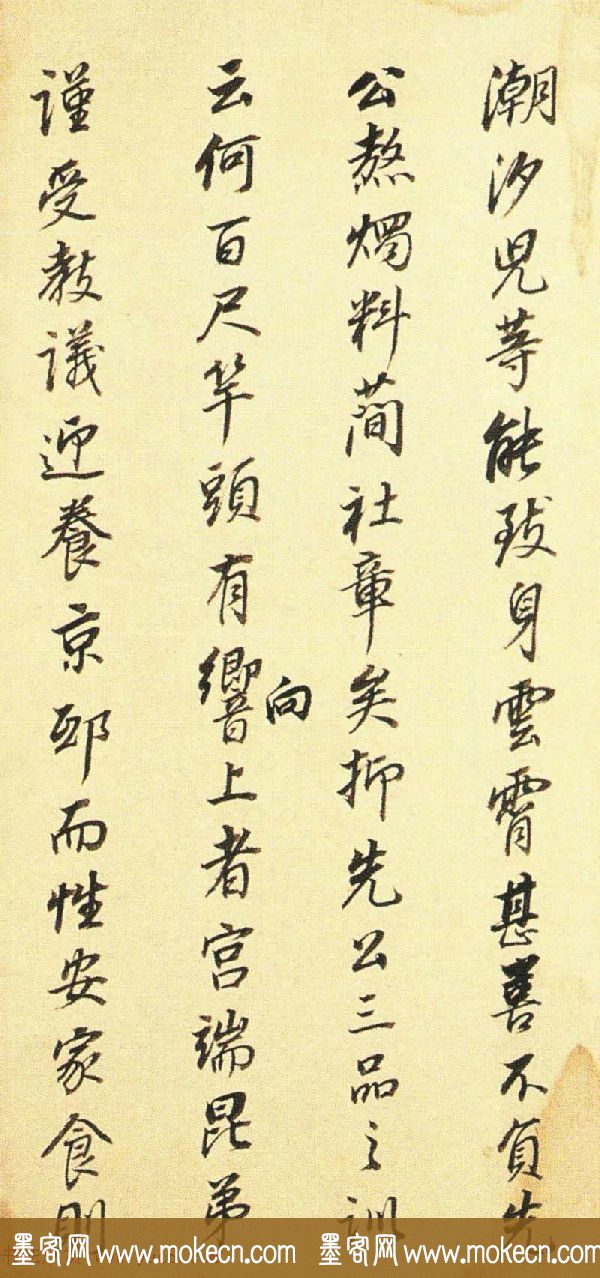 潮汐児等能致身雲霄甚喜不負先
公熬燭料蕳社章矣抑先公三品之訓
云何百尺竿頭有響上者宫端昆弟
向
謹受教議迎養京邸而性安家食則
墨客网 www.mokecn.com 墨客网 www.mokecn.com